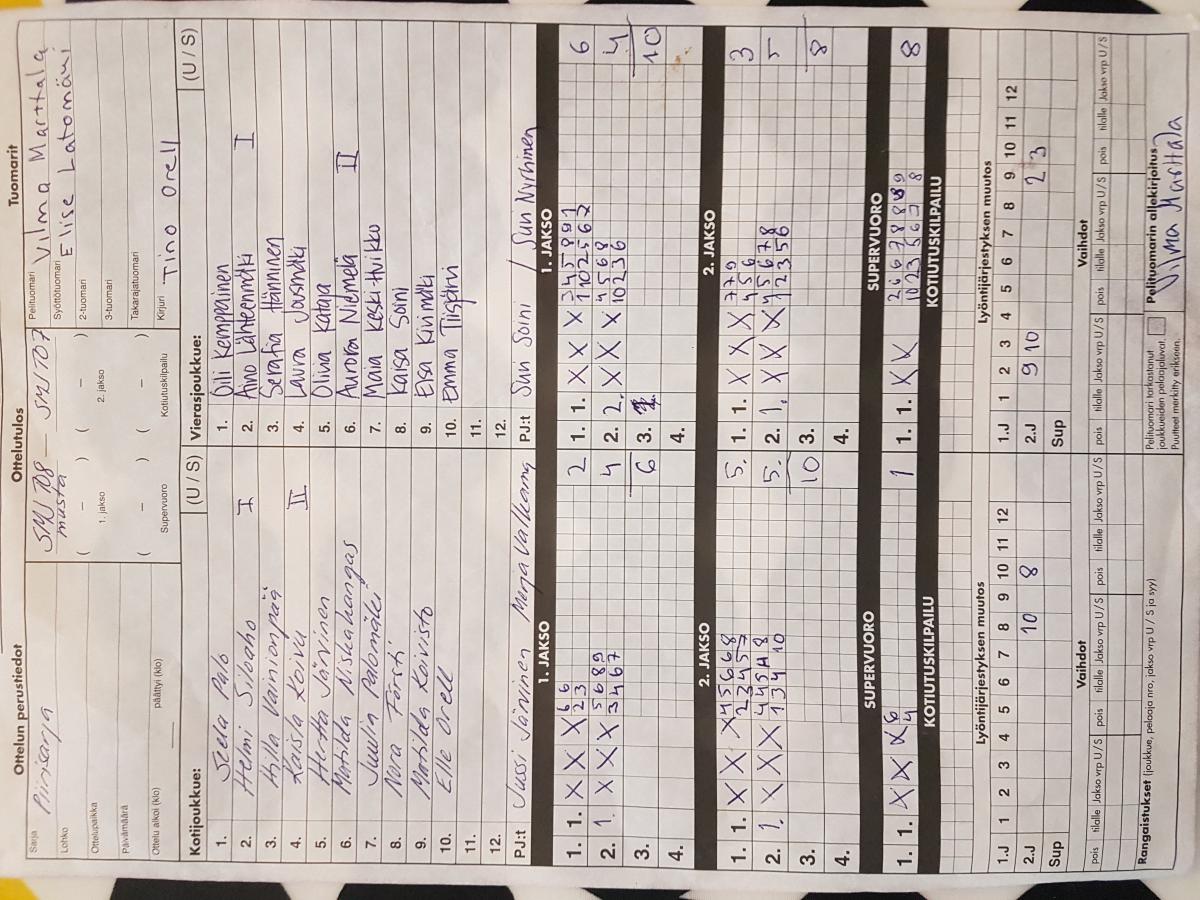 Ottelun perustiedot Ottelutulos Tuomarit
Sarja Piirisarja
SMJ T08 — SMJ T07
musta
Pelituomari Vilma Marttala
Lohko
Syöttötuomari Elise Latomäki
Ottelupaikka
( – ) ( – )
1. jakso 2. jakso
2-tuomari
3-tuomari
Päivämäärä
Takarajatuomari
Ottelu alkoi (klo) päättyi (klo)
( – ) ( – )
Supervuoro Kotiutuskilpailu
Kirjuri Tino Orell
Kotijoukkue: (U / S) Vierasjoukkue: (U / S)
1. Seela Palo 1. Oili Kemppainen
2. Helmi I 2. Aino Lähteenmäki I
3. Hilla Vainionpää 3. Serafia Hänninen
4. Kaisla Koivu II 4. Laura Jousmäki
5. Hertta Järvinen 5. Olivia Kataja
6. Matilda Niskakangas 6. Aurora Niemelä II
7. Juulia Palomäki 7. Maija Keski-Hvikku
8. Nora Försti 8. Kaisa Soini
9. Matilda Koivisto 9. Elsa Kivimäki
10. Elle Orell 10. Emma Tiispäri
11. 11.
12. 12.
PJ:t Jussi Järvinen Merja Valkama PJ:t Suri Soini / Suri Nyrhinen
1. JAKSO 1. JAKSO
1. 1. X X X 6 6 2 1. 1. X X X 3 4 5 8 9 1 6
2 3 1 10 2 5 6 2
2. 1. X X X 5 6 8 9 4 2. 2. X X X 4 5 6 8 4
3 4 6 7 10 2 3 6
3. 6 3. 10
4. 4.
2. JAKSO 2. JAKSO
1. 1. X X X 4 5 6 6 8 5. 1. 1. X X X 7 7 9 3
2 3 4 5 7 4 5 6
2. 1. X X X 4 4 5 4 8 5. 2. 1. X X X 4 5 6 7 8 5
1 3 4 7 10 1 2 3 5 6
3. 10 3. 8
4. 4.
SUPERVUORO SUPERVUORO
1. 1. X X X 6 1 1. 1. X X 2 6 6 7 8 8 8
4 10 2 3 5 6 7 8
KOTIUTUSKILPAILU KOTIUTUSKILPAILU
Lyöntijärjestyksen muutos Lyöntijärjestyksen muutos
1.J 1 2 3 4 5 6 7 8 9 10 11 12 1.J 1 2 3 4 5 6 7 8 9 10 11 12
2.J 10 8 2.J 9 10 2 3
Sup Sup
Vaihdot Vaihdot
pois tilalle Jakso vrp U / S pois tilalle Jakso vrp U / S pois tilalle Jakso vrp U / S pois tilalle Jakso vrp U / S pois tilalle Jakso vrp U / S pois tilalle Jakso vrp U / S
Rangaistukset (joukkue, pelaaja nro, jakso vrp U / S ja syy)
Pelituomari tarkastanut
joukkueiden pelaajaluvat.
Puutteet merkitty erikseen.
Pelituomarin allekirjoitus
Vilma Marttala